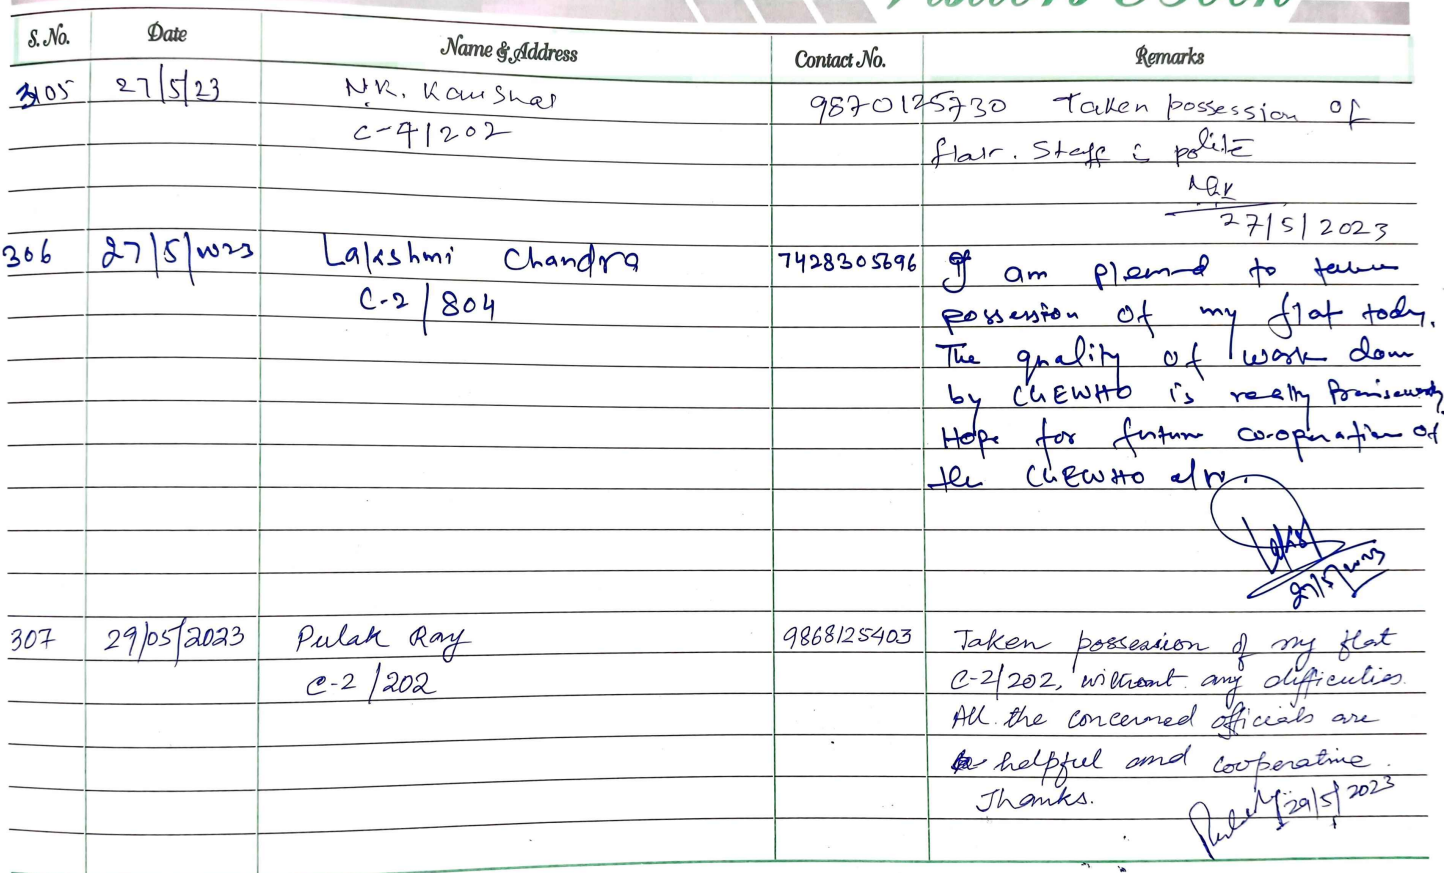 Visitors Book
S. No. Date Name & Address Contact No. Remarks
305 27/5/23 N.K. Kaushal 9870125730 Taken possession of
C-4/202 flat. Staff is polite
27/5/2023
306 27/5/2023 Lakshmi Chandra 7428305696 I am pleased to take
C-2/804 possession of my flat today.
The quality of work done
by CGEWHO is really Praiseworthy.
Hope for future co-operation of
the CGEWHO also.
27/5/2023
307 29/05/2023 Pulak Ray 9868125403 Taken possession of my flat
C-2/202 C-2/202, without any difficulties.
All the concerned officials are
helpful and cooperative.
Thanks.
29/5/2023